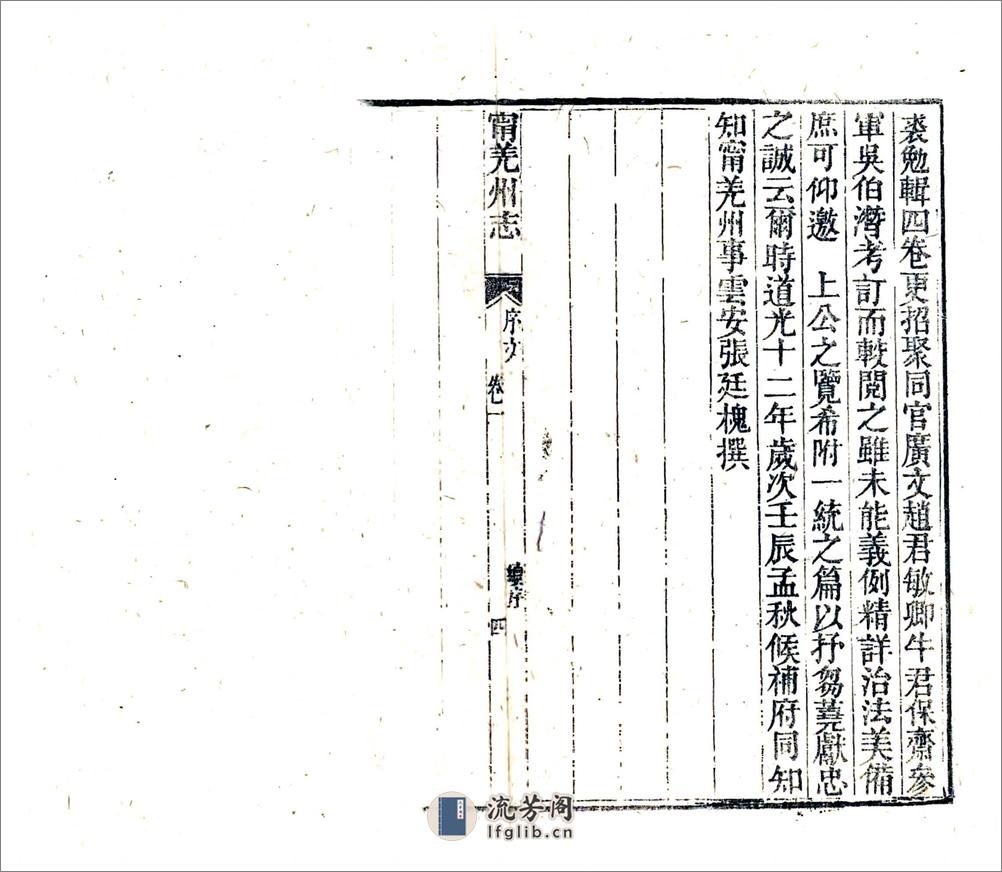 裘勉輯四卷更招聚同官廣文趙君敏卿牛君保齋參
軍吳伯潛考訂而較閱之雖未能義例精詳治法美備
庶可仰邀　上公之覽希附一統之篇以抒芻蕘獻忠
之誠云爾時道光十二年歲次壬辰孟秋候補府同知
知甯羌州事雲安張廷槐撰
甯羌州志　序文　卷一　續序　四
流芳阁
lfglib.cn